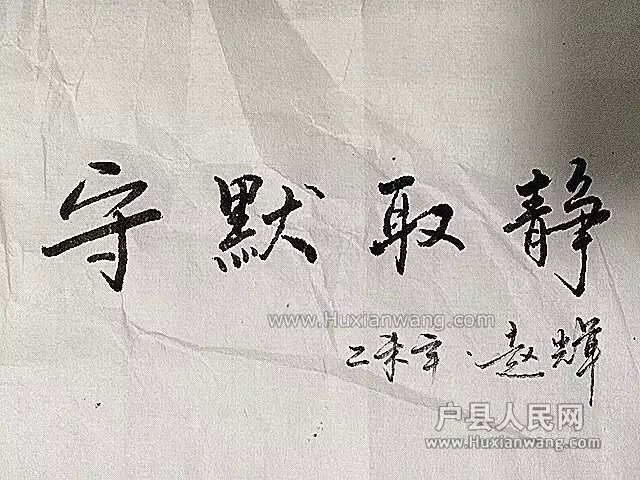 守默取静
赵辉
www.Huxianwang.com
户县人民网
www.Huxianwang.com